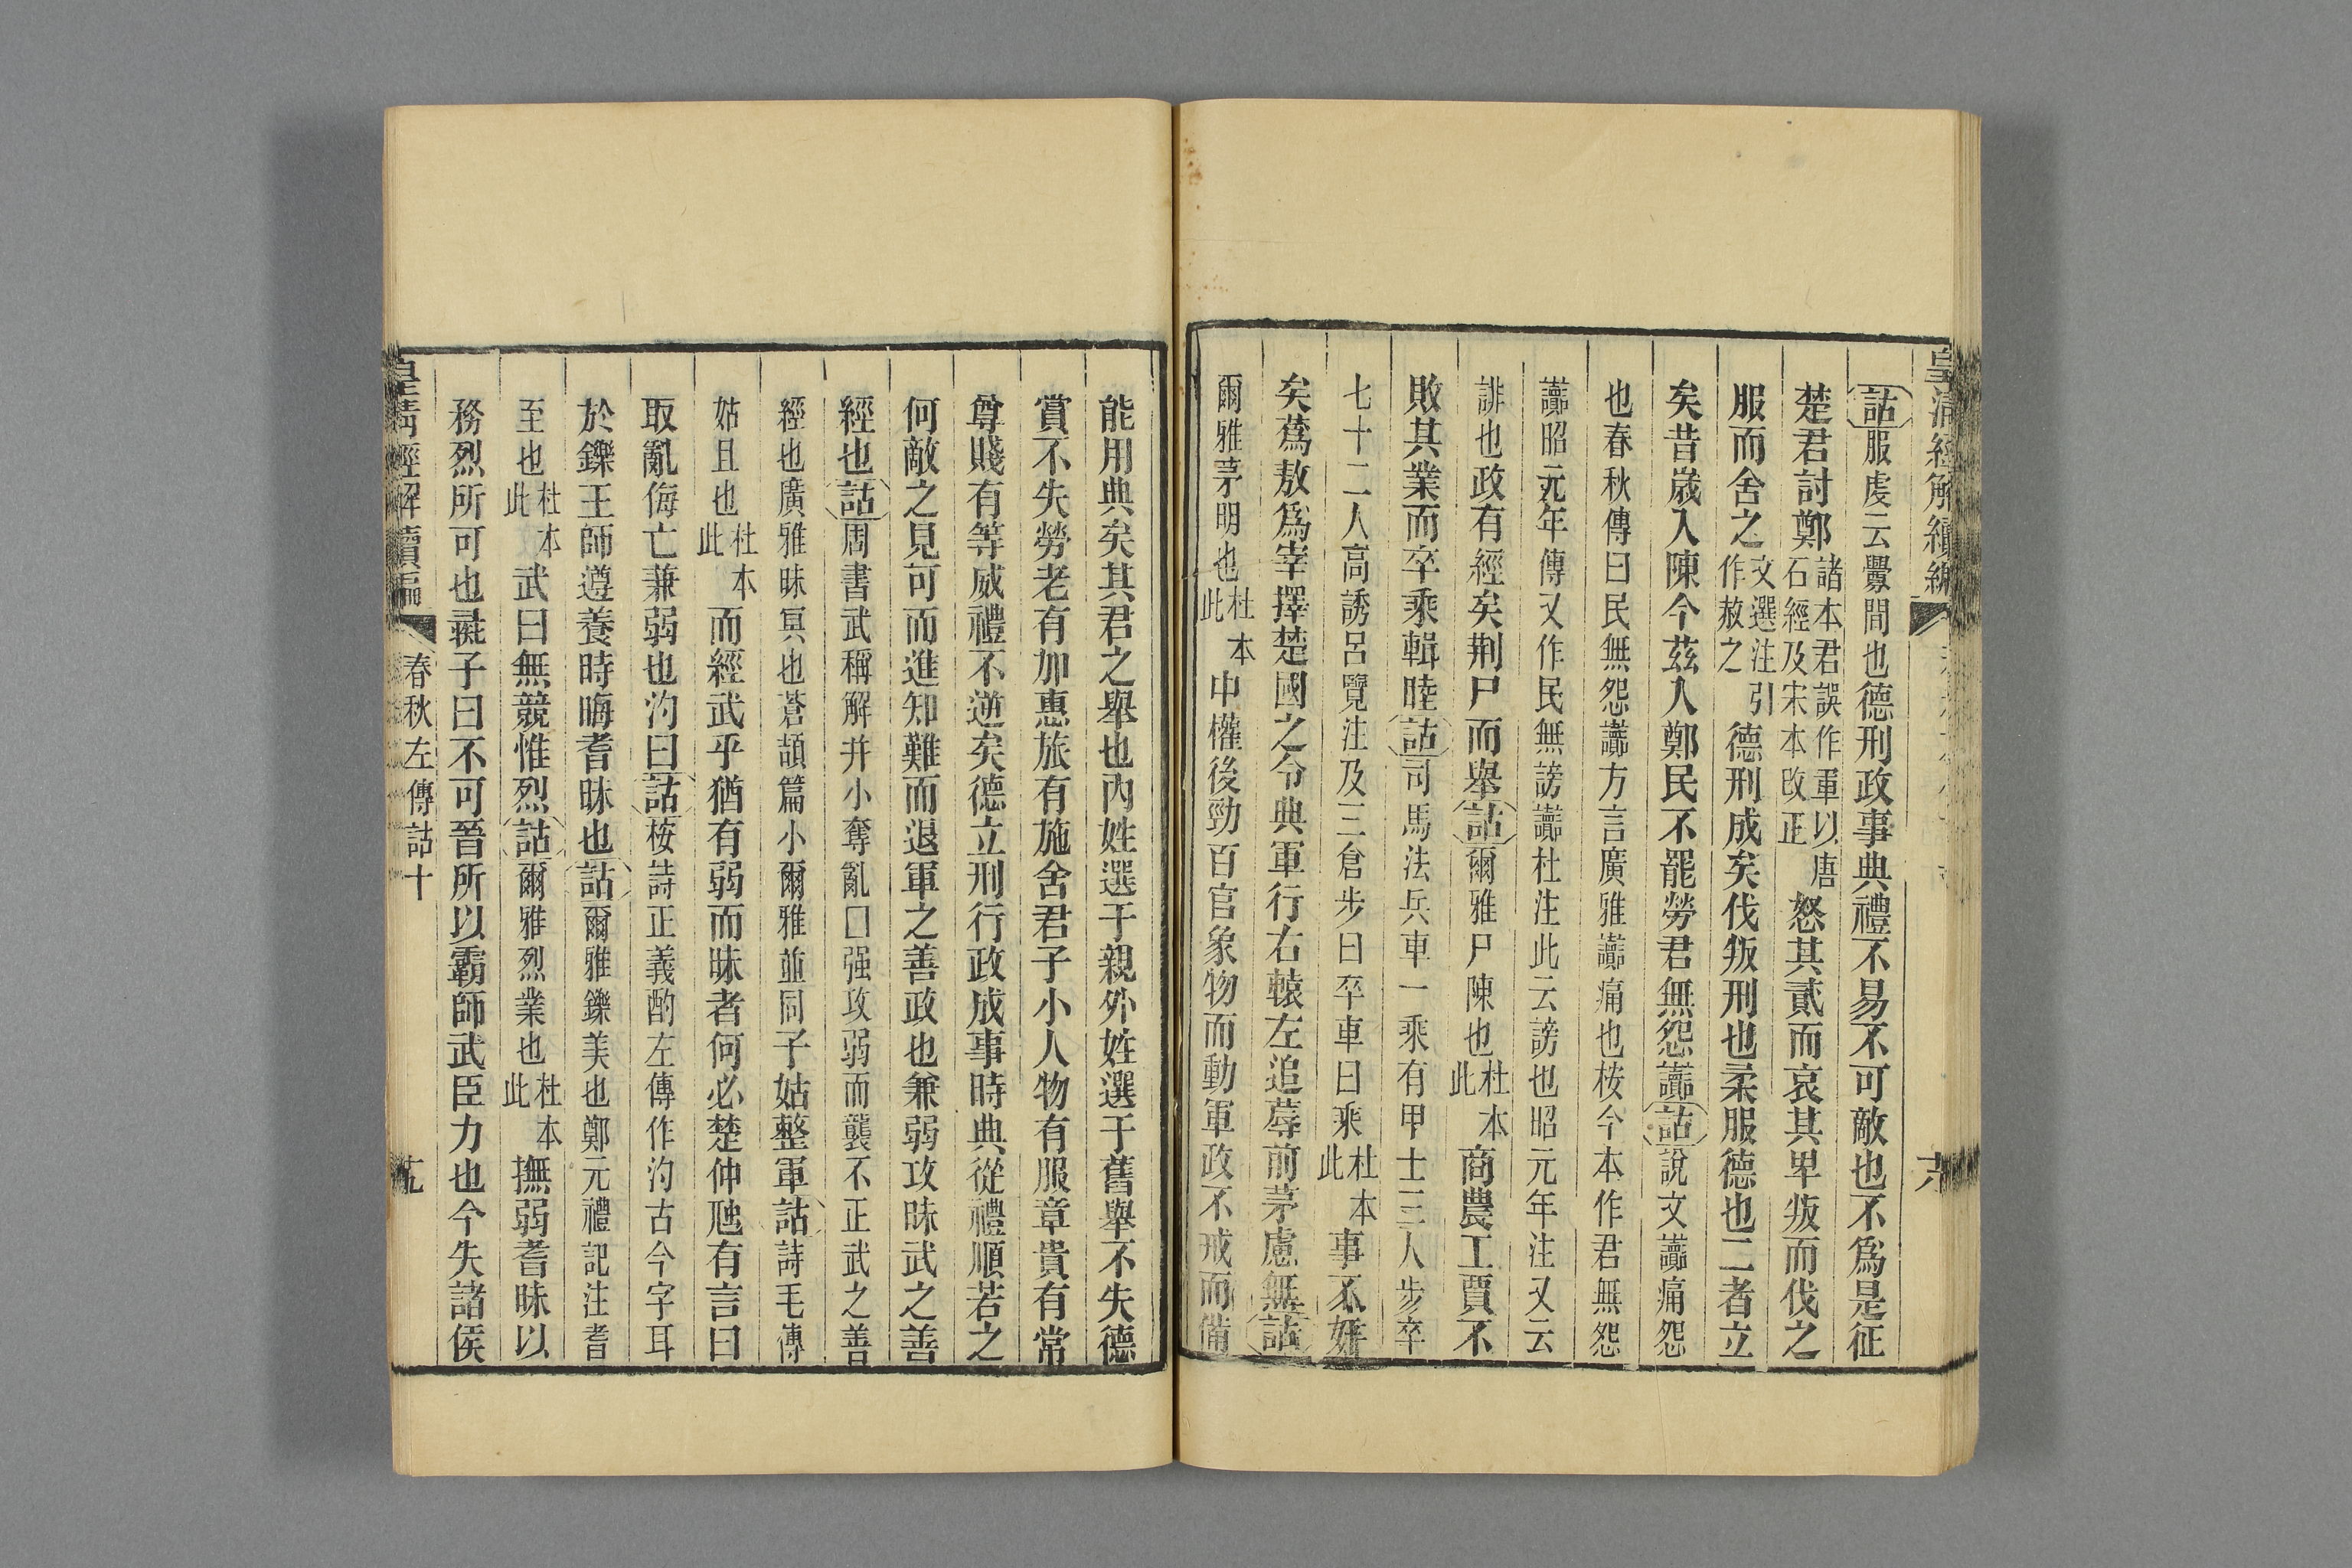 皇清經解續編
詁服虔云釁間也德刑政事典禮不易不可敵也不爲是征
楚君討鄭諸本君誤作軍以唐石經及宋本改正怒其貳而哀其卑叛而伐之
服而舍之文選注引作赦之德刑成矣伐叛刑也柔服德也二者立
矣昔歲入陳今茲入鄭民不罷勞君無怨讟詁說文讟痛怨
也春秋傳曰民無怨讟方言廣雅讟痛也桉今本作君無怨
讟昭元年傳又作民無謗讟杜注此云謗也昭元年注又云
誹也政有經矣荆尸而舉詁爾雅尸陳也杜本此商農工賈不
敗其業而卒乘輯睦詁司馬法兵車一乘有甲士三人步卒
七十二人高誘呂覽注及三倉步曰卒車曰乘杜本此事不奸
矣蔿敖爲宰擇楚國之令典軍行右轅左追蓐前茅慮無詁
爾雅茅明也杜本此中權後勁百官象物而動軍政不戒而備
能用典矣其君之舉也內姓選于親外姓選于舊舉不失德
賞不失勞老有加惠旅有施舍君子小人物有服章貴有常
尊賤有等威禮不逆矣德立刑行政成事時典從禮順若之
何敵之見可而進知難而退軍之善政也兼弱攻昧武之善
經也詁周書武稱解并小奪亂□强攻弱而襲不正武之善
經也廣雅昧冥也蒼頡篇小爾雅並同子姑整軍詁詩毛傳
姑且也杜本此而經武乎猶有弱而昧者何必楚仲虺有言曰
取亂侮亡兼弱也汋曰詁桉詩正義酌左傳作汋古今字耳
於鑠王師遵養時晦耆昧也詁爾雅鑠美也鄭元禮記注耆
至也杜本此武曰無競惟烈詁爾雅烈業也杜本此撫弱耆昧以
務烈所可也彘子曰不可晉所以霸師武臣力也今失諸侯
皇清經解續編 春秋左傳詁十